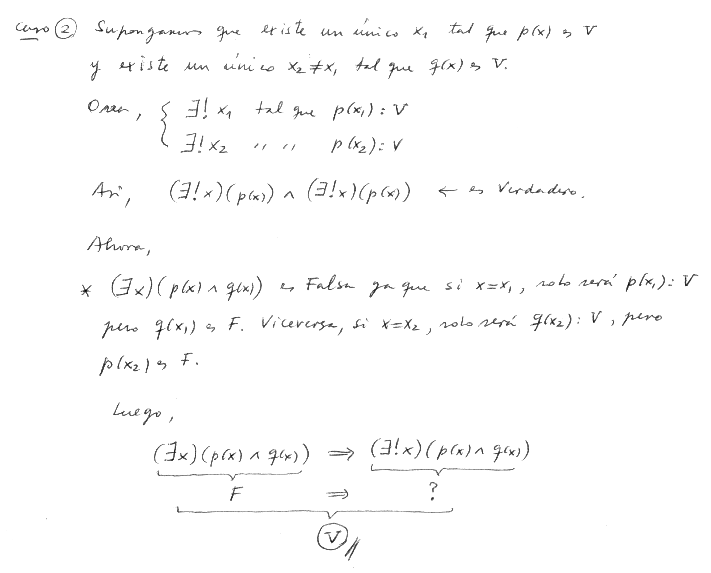 Caso ② Supongamos que existe un único x₁ tal que p(x) es V
y existe un único x₂ ≠ x₁ tal que q(x) es V.
O sea, { ∃! x₁ tal que p(x₁) : V
∃! x₂ " " p(x₂) : V
Así, (∃!x)(p(x)) ∧ (∃!x)(p(x)) ← es Verdadero.
Ahora,
* (∃x)(p(x) ∧ q(x)) es Falsa ya que si x=x₁, solo será p(x₁) : V
pero q(x₁) es F. Viceversa, si x=x₂, solo será q(x₂) : V, pero
p(x₂) es F.
Luego,
(∃x)(p(x) ∧ q(x)) ⇒ (∃!x)(p(x) ∧ q(x))
F ⇒ ?
V